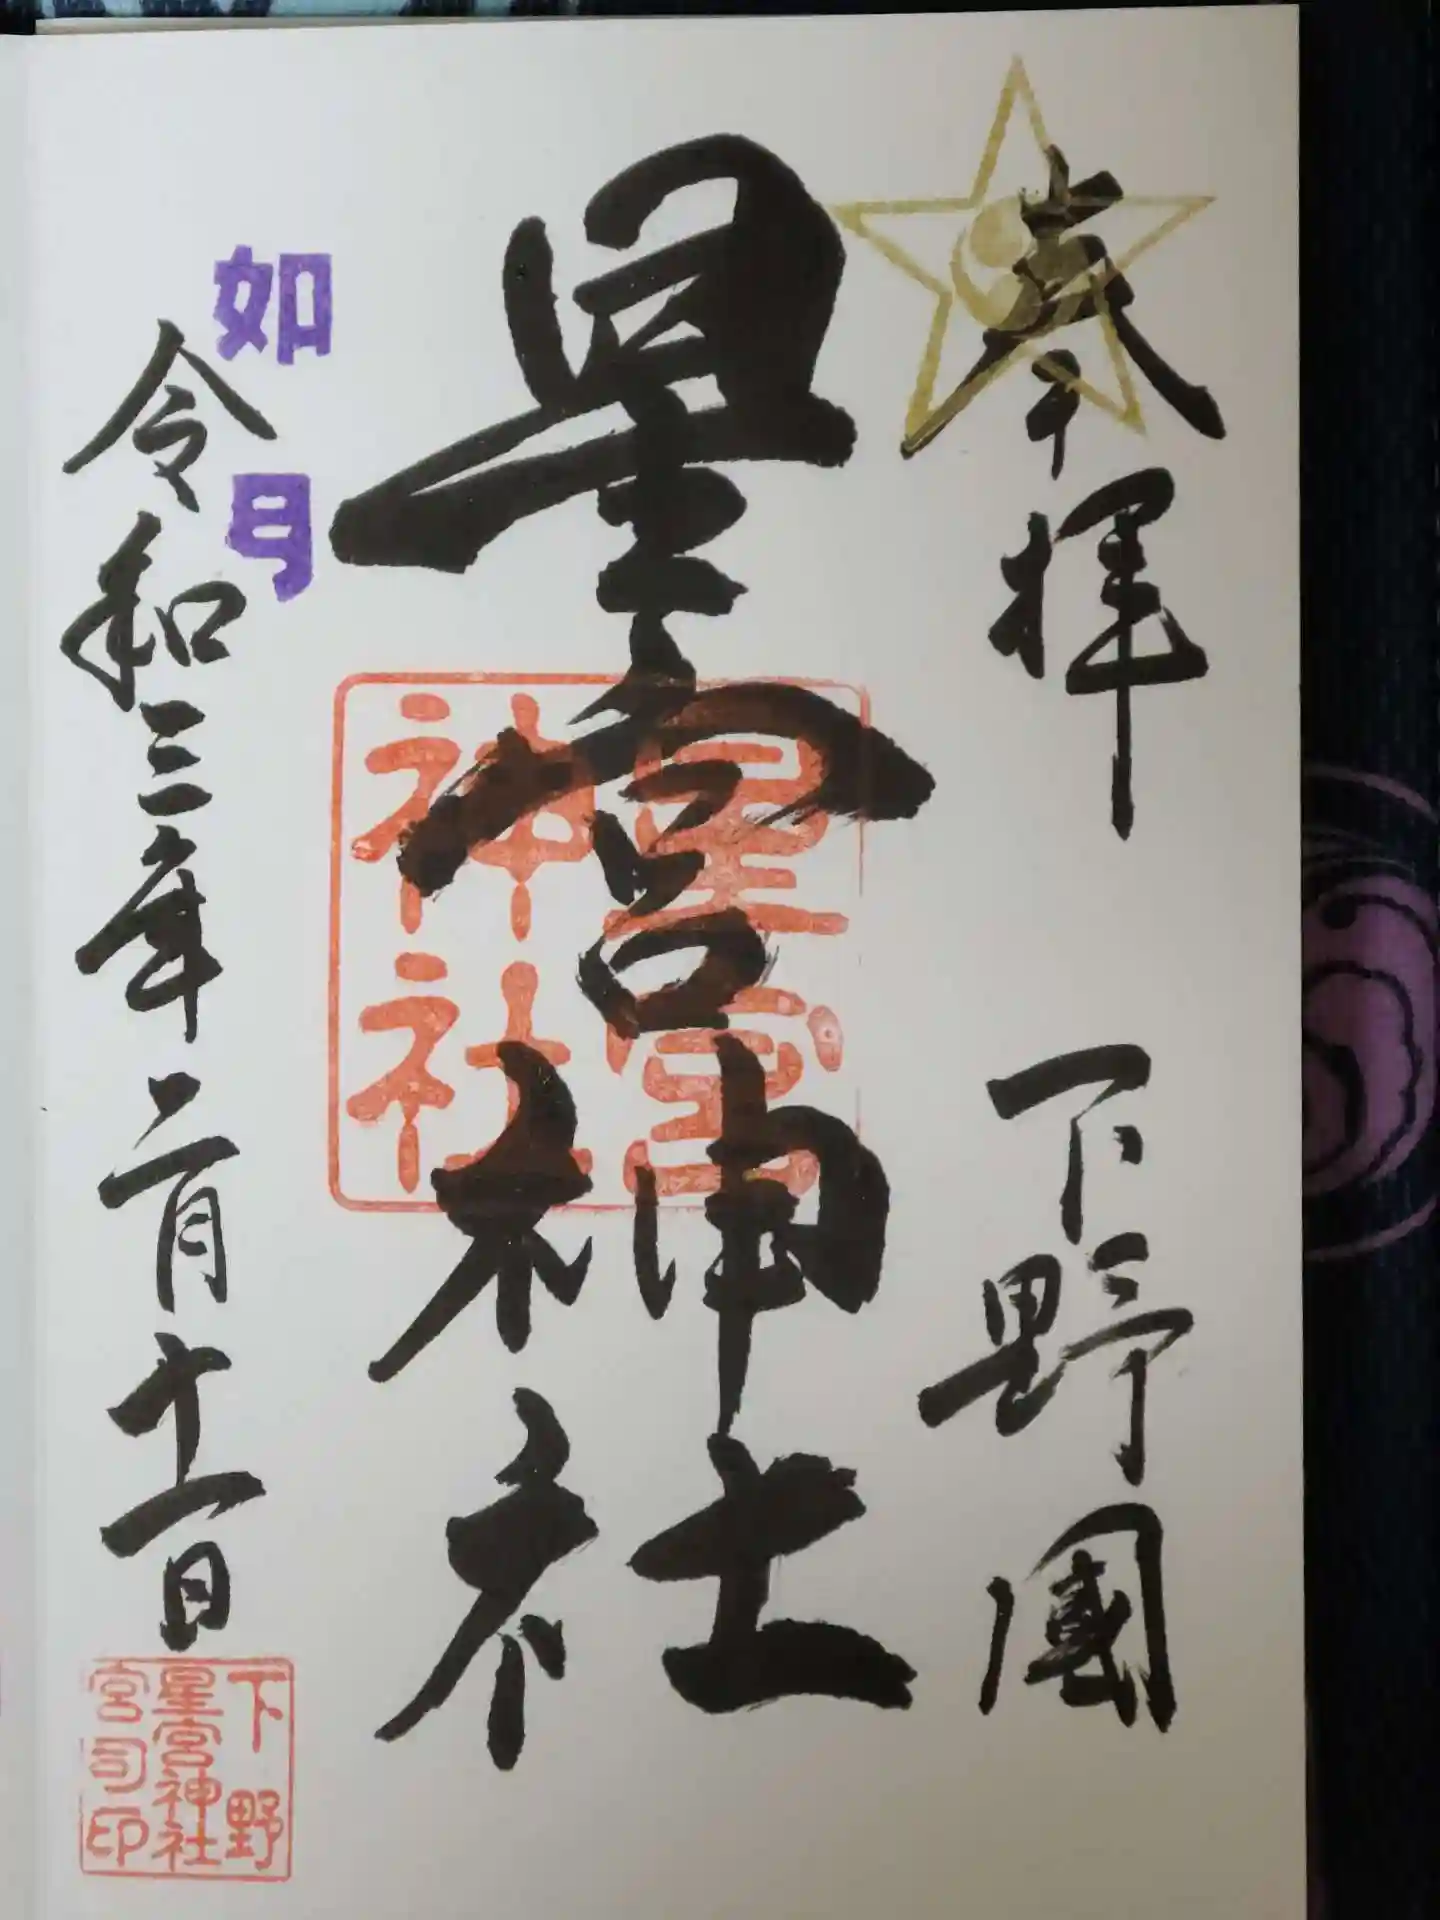 奉拝
下野國
星宮神社
星宮
神社
如月
令和三年二月十一日
下野
星宮神社
宮司印